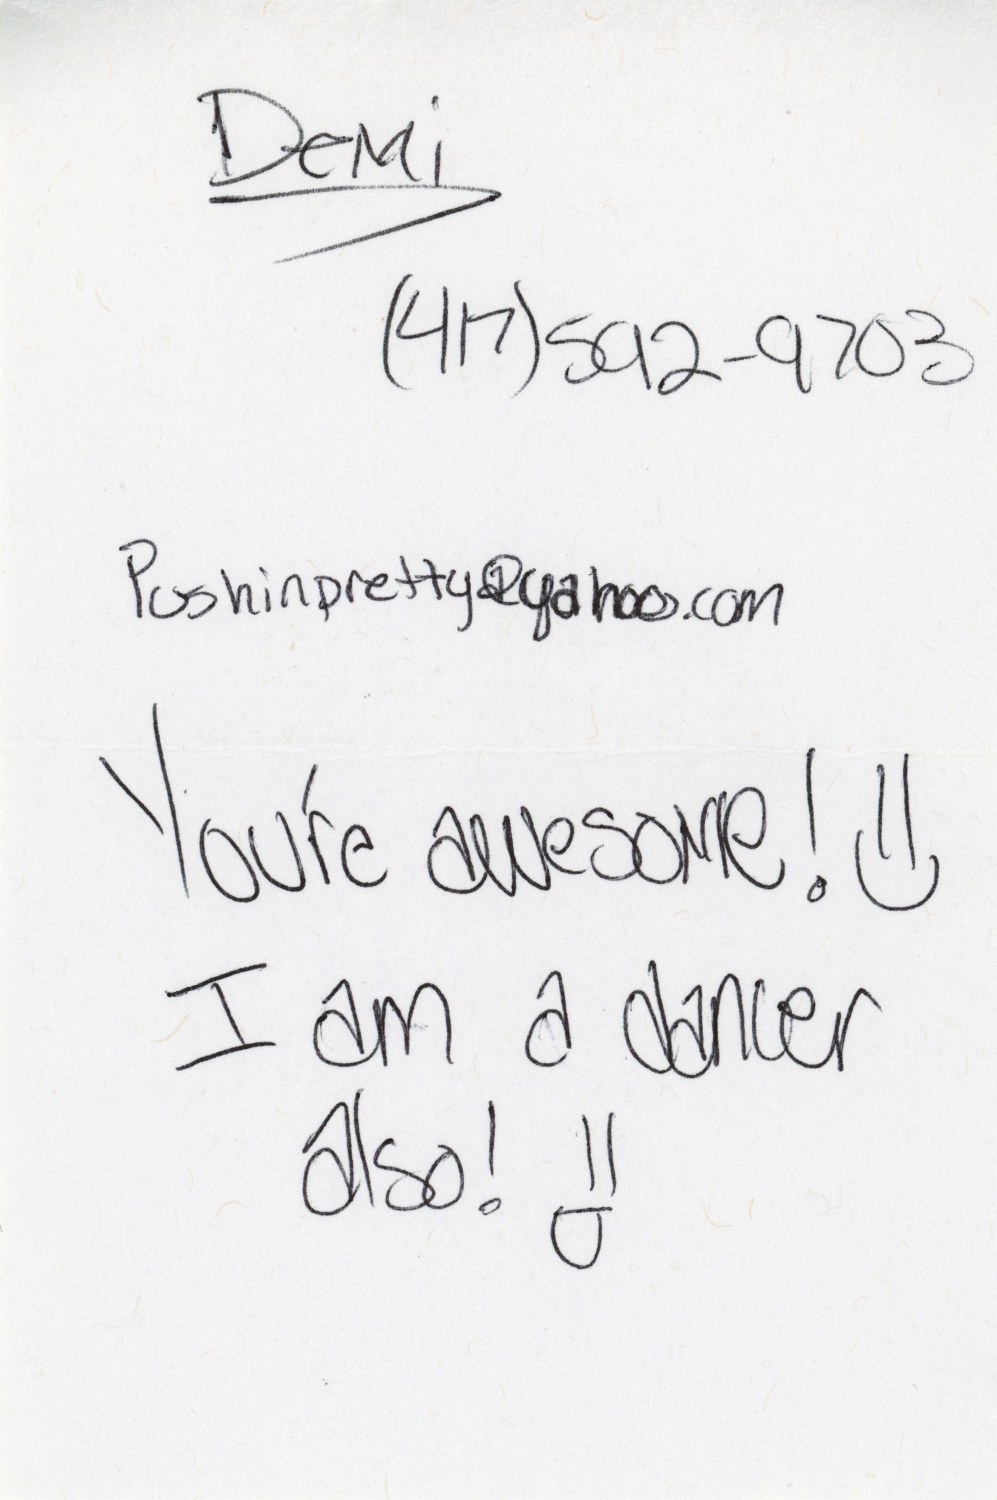 Demi
(417)592-9703
Pushinpretty@yahoo.com
You're awesome! :)
I am a dancer
also! :D